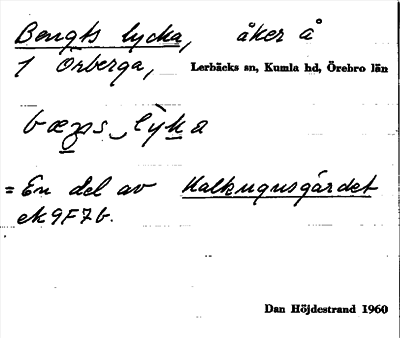 Bengts lycka, åker å
1 Örberga, Lerbäcks sn, Kumla hd, Örebro län
= En del av Kalkugnsgärdet
ek 9F7b.
Dan Höjdestrand 1960